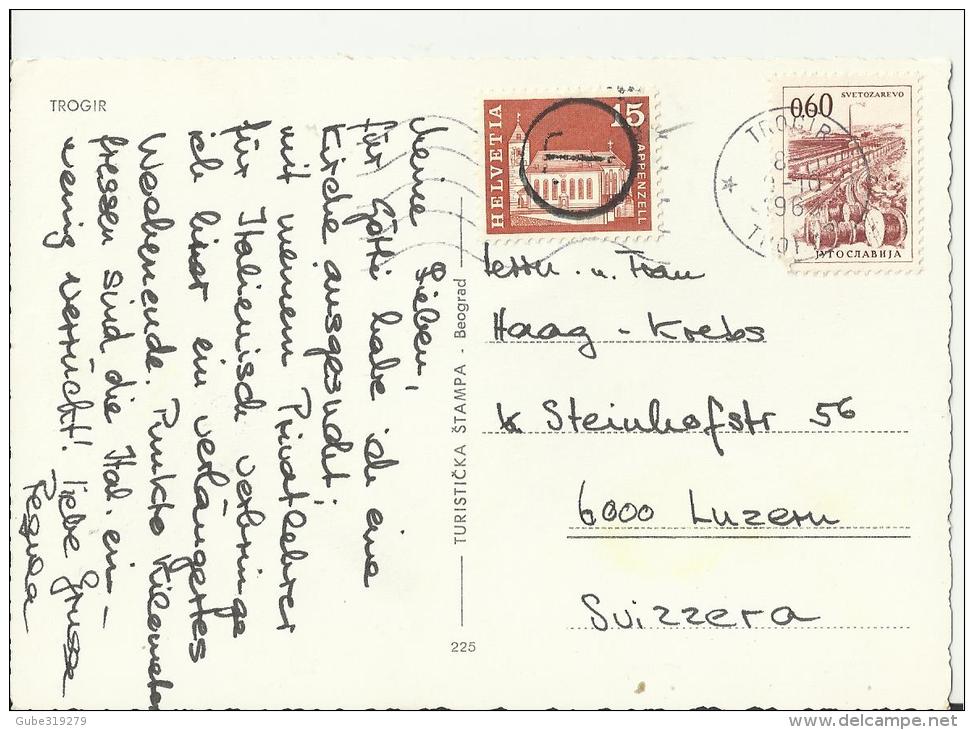 TROGIR
Meine Lieben,
für Götti habe ich eine
Kirche ausgesucht;
mit meinem Privatlehrer
für Italienisch verbringe
ich hier ein verlängertes
Wochenende. Punkto Kilometer
fressen sind die Ital. ein-
wenig verrückt! Liebe Grüsse
Regula
TURISTIČKA ŠTAMPA - Beograd
225
HELVETIA
15
APPENZELL
0.60
SVETOZAREVO
ЈУГОСЛАВИЈА
TROGIR
Herrn. u. Frau
Haag - Krebs
Steinhofstr 56
6000 Luzern
Svizzera
Gube319279
delcampe.net